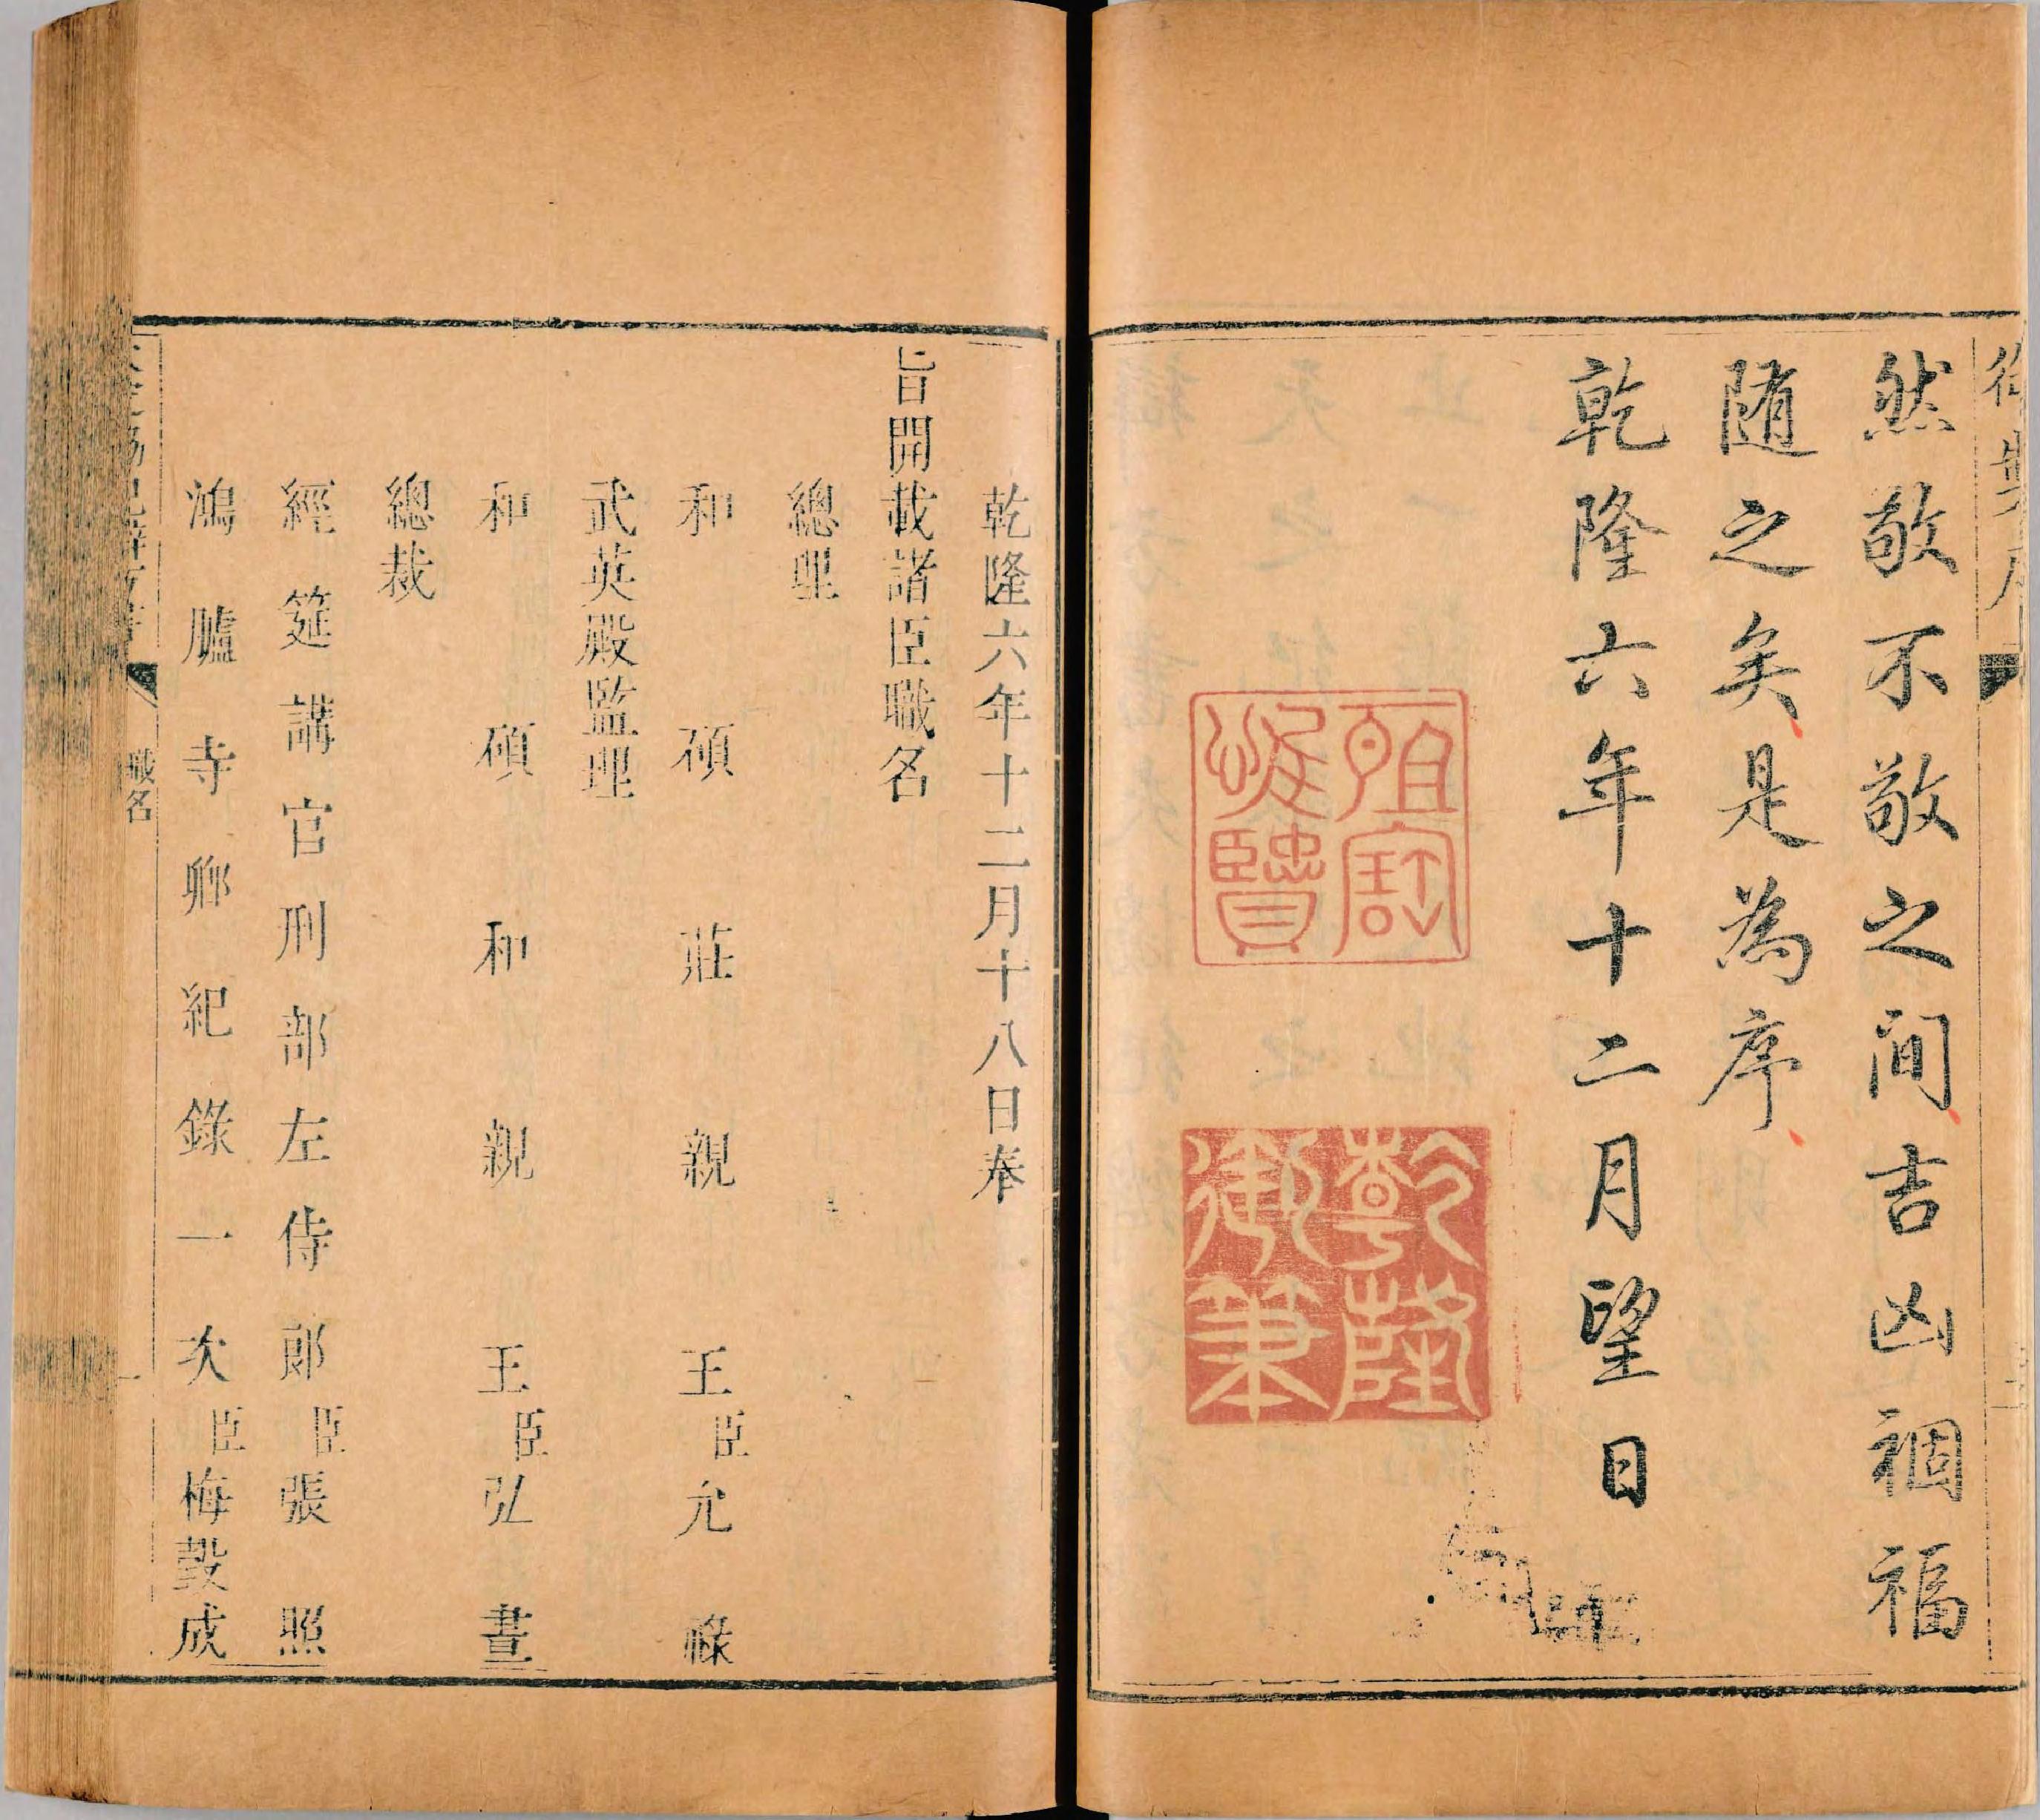 然敬不敬之間吉凶禍福
随之矣是為序
乾隆六年十二月望日
乾隆御筆
乾隆六年十二月十八日奉
旨開載諸臣職名
總理
和碩莊親王臣允祿
武英殿監理
和碩和親王臣弘晝
總裁
經筵講官刑部左侍郎臣張照
鴻臚寺卿紀錄一次臣梅瑴成
職名